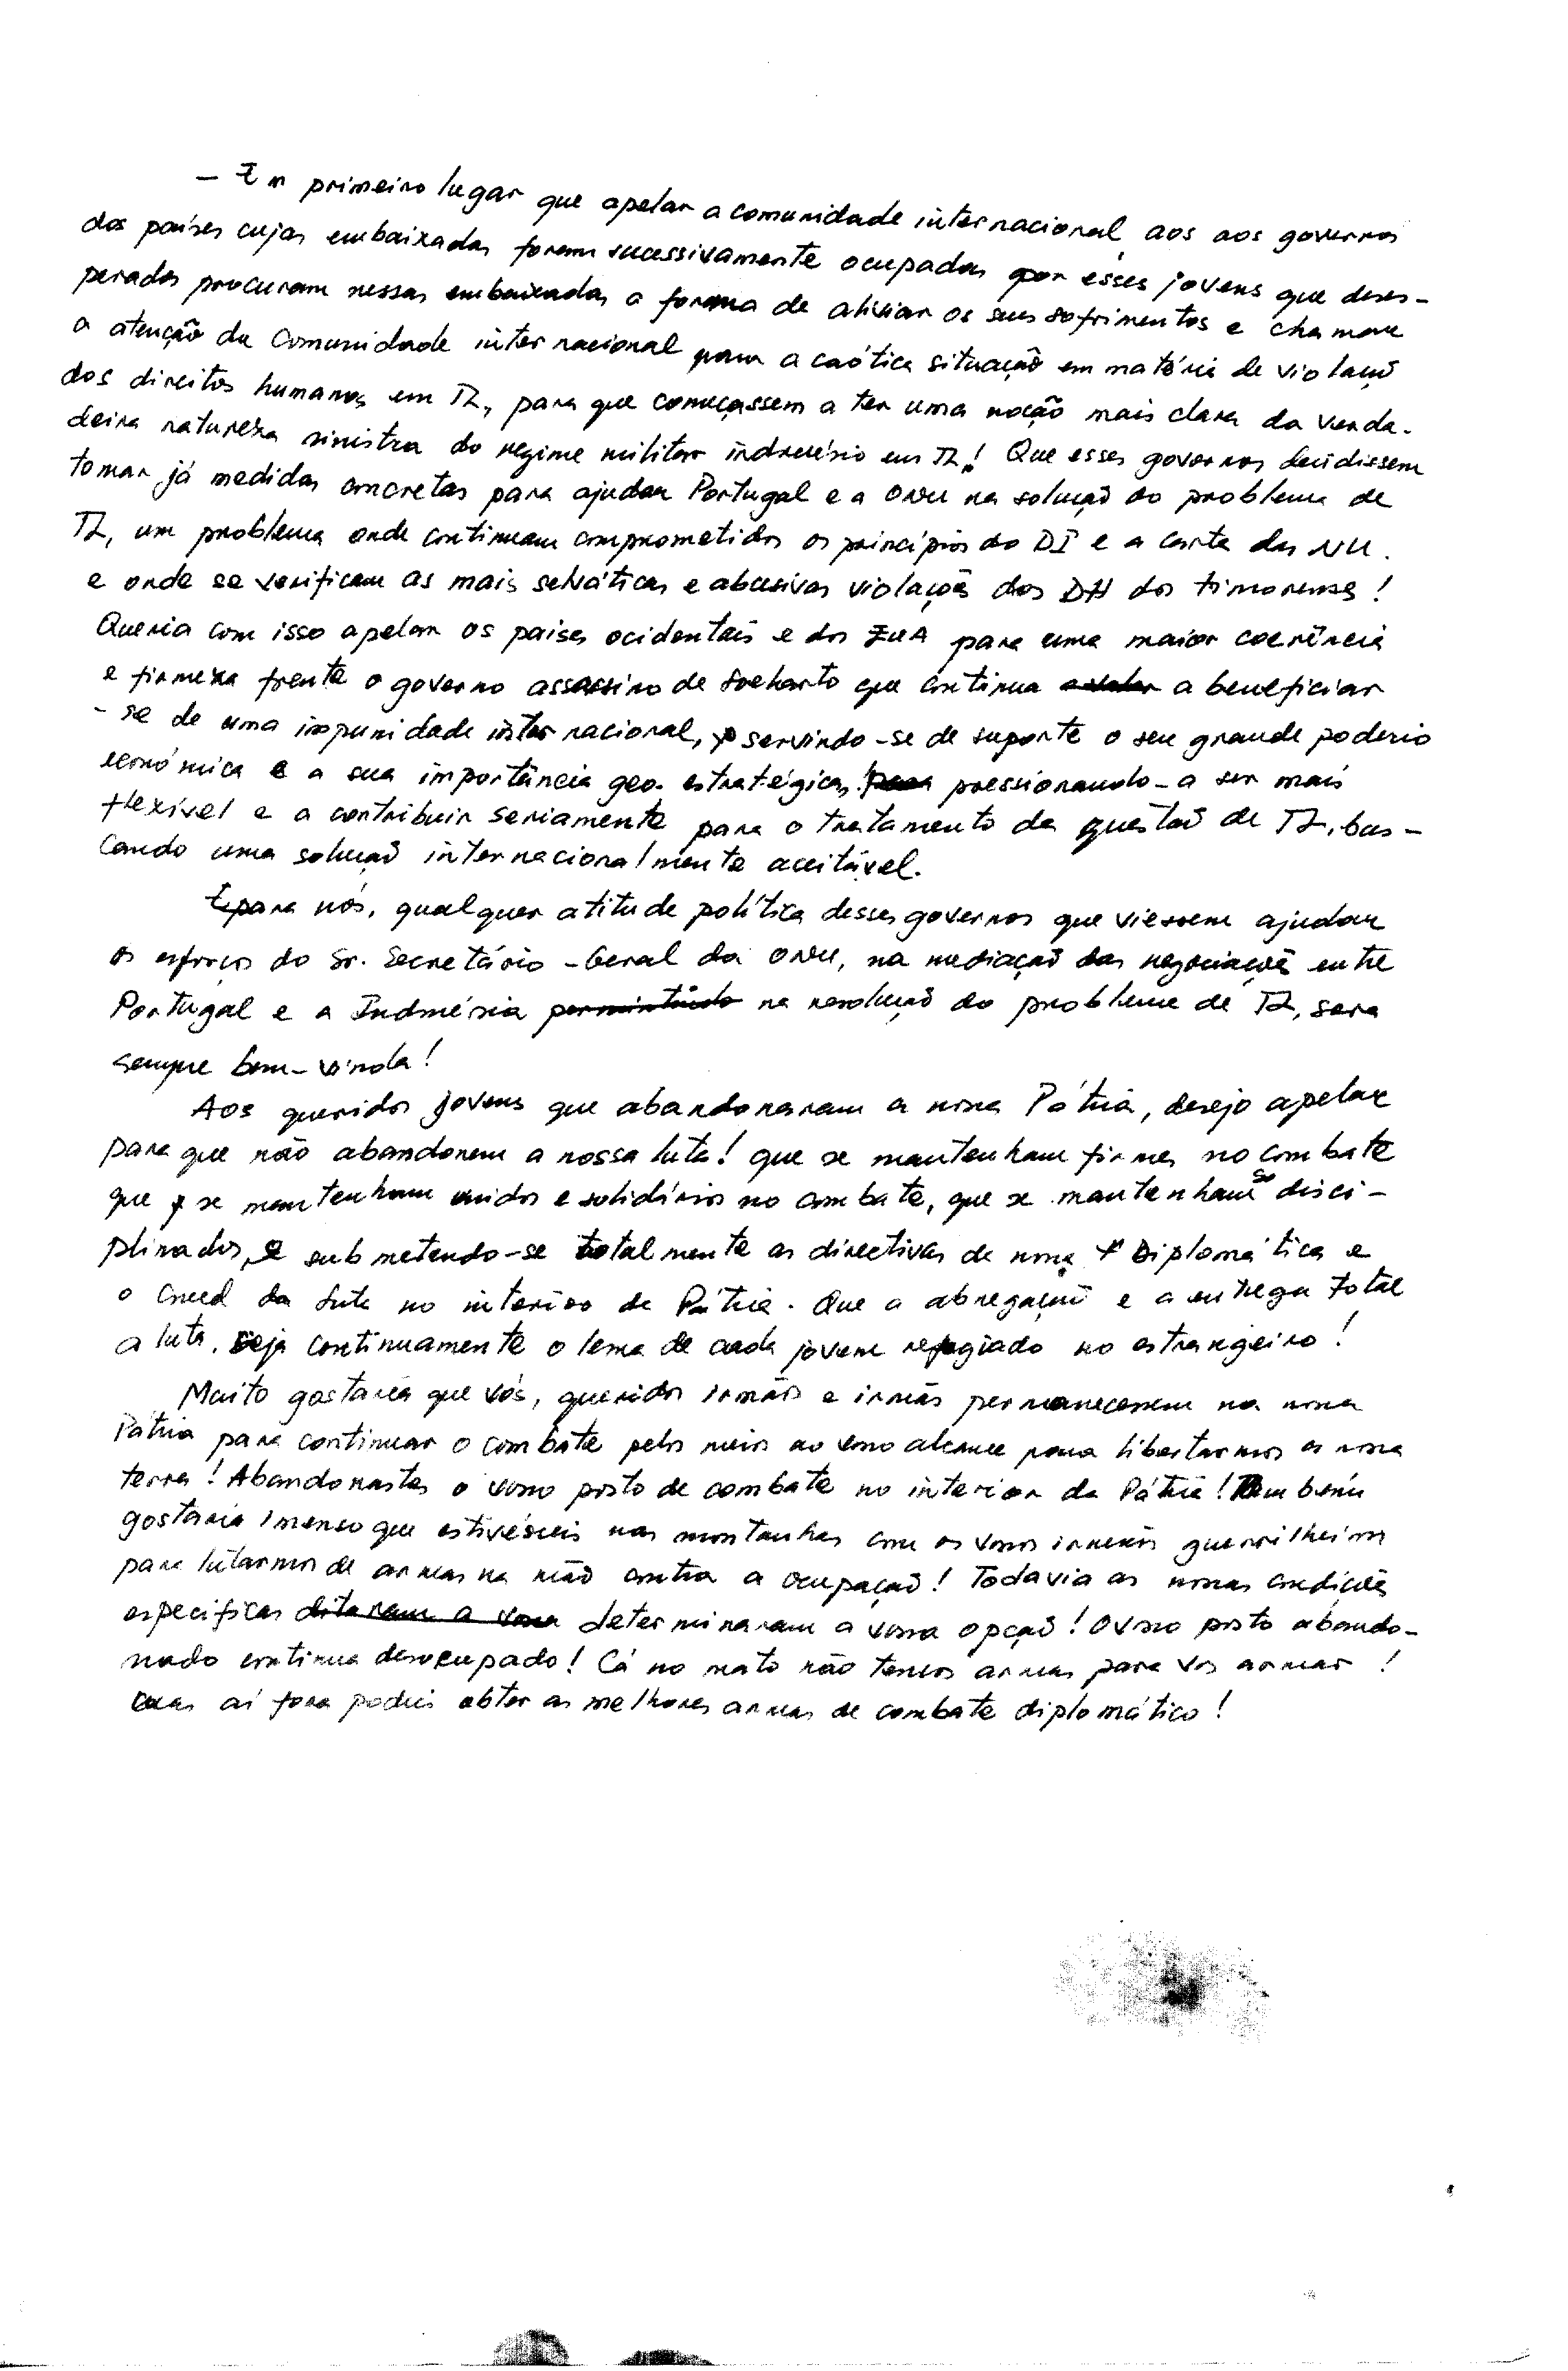 – Em primeiro lugar que apelar a comunidade internacional aos aos governos
dos países cujas embaixadas foram sucessivamente ocupadas por esses jovens que deses-
perados procuram nessas embaixadas a forma de aliviar os seus sofrimentos e chamar
a atenção da Comunidade internacional para a caótica situação em matéria de violação
dos direitos humanos em TL, para que começassem a ter uma noção mais clara da verda-
deira natureza sinistra do regime militar indonésio em TL! Que esses governos decidissem
tomar já medidas concretas para ajudar Portugal e a ONU na solução do problema de
TL, um problema onde continuam comprometidos os princípios do DI e a carta das NU.
e onde se verificam as mais selváticas e abusivas violações dos DH dos timorenses!
Queria com isso apelar os países ocidentais e dos EUA para uma maior coerência
e firmeza frente o governo assassino de Soeharto que continua a beneficiar
-se de uma impunidade internacional, servindo-se de suporte o seu grande poderio
económica e a sua importância geo-estratégica, pressionando-a ser mais
flexível e a contribuir seriamente para o tratamento da questão de TL, bus-
cando uma solução internacionalmente aceitável.
para nós, qualquer atitude política desses governos que viessem ajudar
os esforços do Sr. Secretário-Geral da ONU, na mediação das negociações entre
Portugal e a Indonésia na resolução do problema de TL, sera
sempre bem-vinda!
Aos queridos jovens que abandonaram a nossa Pátria, desejo apelar
para que não abandonem a nossa luta! que se mantenham firmes no combate
que se mantenham unidos e solidários no combate, que se mantenham disci-
plinados, submetendo-se totalmente as directivas de nossa Fº Diplomática e
o da luta no interior da Pátria. Que a abnegação e a entrega total
a luta, seja continuamente o lema de cada jovem refugiado no estrangeiro!
Muito gostaria que vós, queridos irmãos e irmãs permanecessem na nossa
Pátria para continuar o combate pelos meios ao vosso alcance para libertarmos a nossa
terra! Abandonastes o vosso posto de combate no interior da Pátria! Também
gostaria imenso que estivésseis nas montanhas com os vossos irmãos guerrilheiros
para lutarmos de armas na mão contra a ocupação! Todavia as nossas condições
especificas determinaram a vossa opção! O vosso posto abando-
nado continua desocupado! Cá no mato não temos armas para vos armar!
mas aí fora podeis obter as melhores armas de combate diplomático!